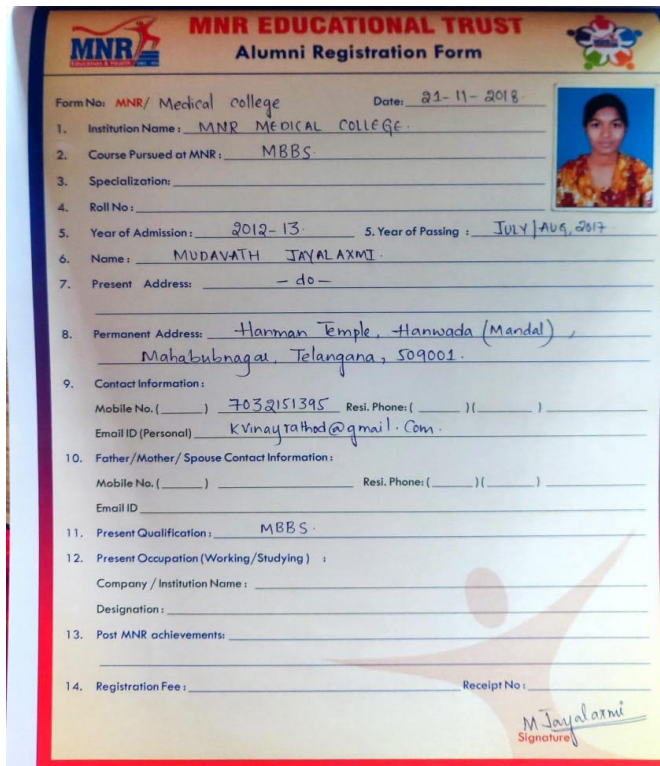 MNR EDUCATIONAL TRUST
MNR
Education & Health
Alumni Registration Form
Form No: MNR/ Medical college Date: 21-11-2018.
1. Institution Name: MNR MEDICAL COLLEGE.
2. Course Pursued at MNR: MBBS.
3. Specialization:
4. Roll No:
5. Year of Admission: 2012-13. 5. Year of Passing: JULY/AUG, 2017
6. Name: MUDAVATH JAYALAXMI.
7. Present Address: -do-
8. Permanent Address: Hanman Temple, Hanwada (Mandal),
Mahabubnagar, Telangana, 509001.
9. Contact Information:
Mobile No. ( ) 7032151395 Resi. Phone: ( )( )
Email ID (Personal) kvinayrathod@gmail.com.
10. Father/Mother/Spouse Contact Information:
Mobile No. ( ) Resi. Phone: ( )( )
Email ID
11. Present Qualification: MBBS.
12. Present Occupation (Working/Studying) :
Company / Institution Name:
Designation:
13. Post MNR achievements:
14. Registration Fee: Receipt No:
M Jayalaxmi
Signature